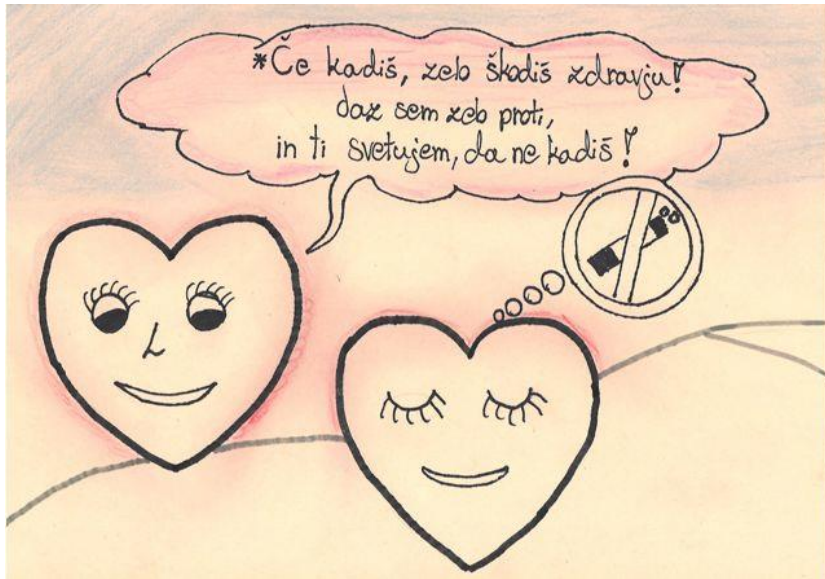 *Če kadiš, zeb škodiš zdravju!
daz sem zeb proti,
in ti svetujem, da ne kadiš!